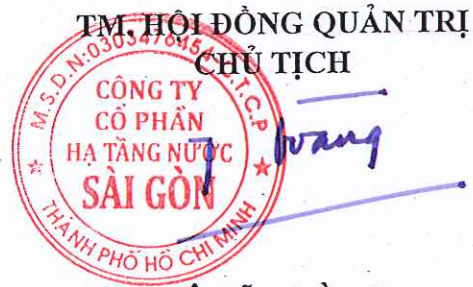 TM. HỘI ĐỒNG QUẢN TRỊ
CHỦ TỊCH
M.S.D.N:0303476454
C.T.C.P
CÔNG TY
CỔ PHẦN
HẠ TẦNG NƯỚC
SÀI GÒN
THÀNH PHỐ HỒ CHÍ MINH